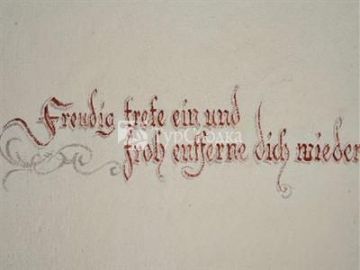 Freudig trete ein und
froh entferne dich wieder
ТурСправка